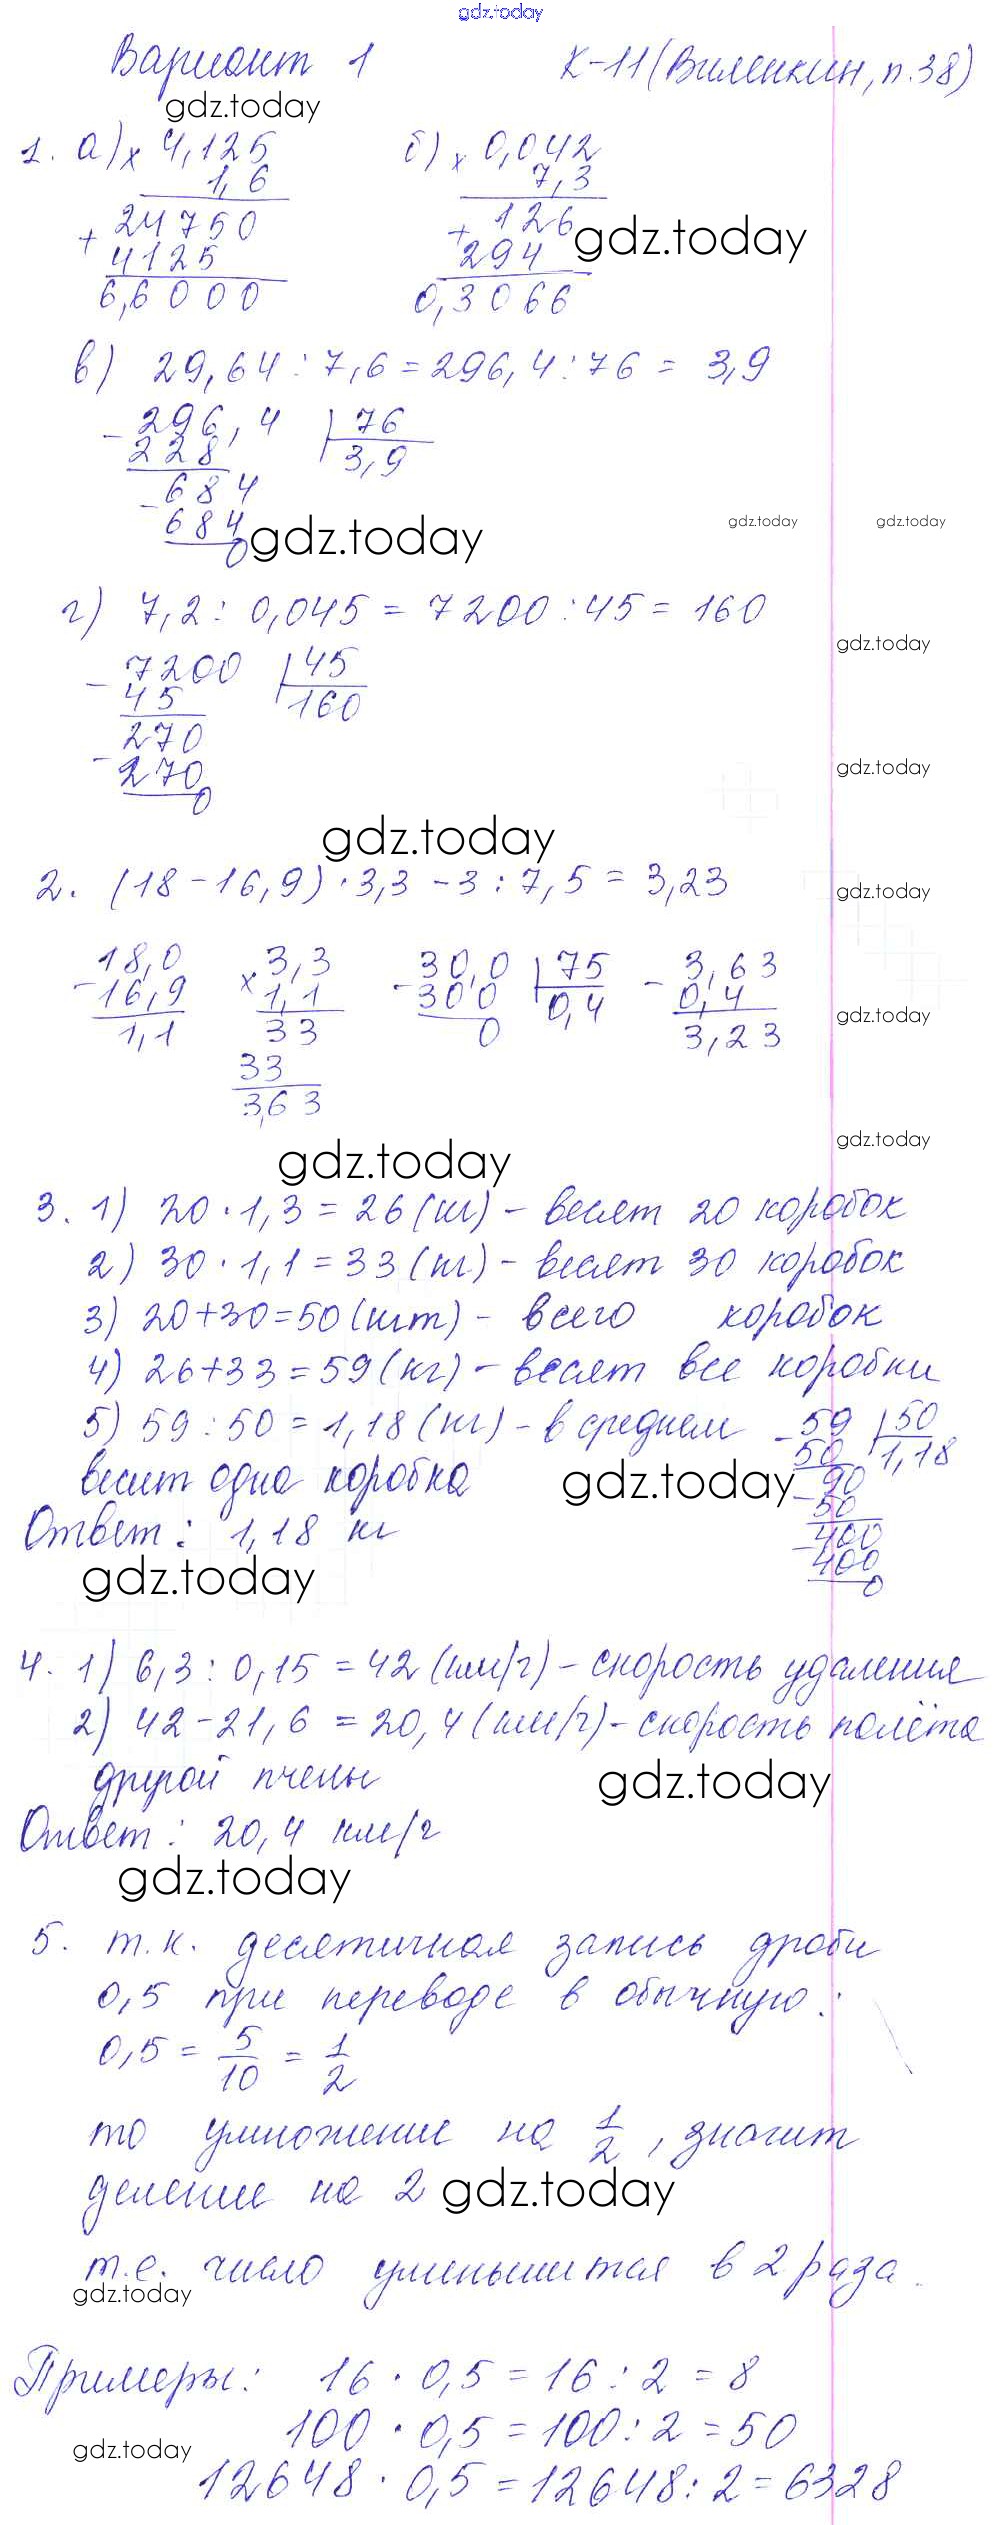 gdz.today
Вариант 1 К-11 (Виленкин, п.38)
gdz.today
1. а) × 4,125 б) × 0,042
1,6 7,3
+ 24750 + 126 gdz.today
4125 294
6,6000 0,3066
в) 29,64 : 7,6 = 296,4 : 76 = 3,9
- 296,4 | 76
228 3,9
- 684
684 gdz.today gdz.today gdz.today
0
г) 7,2 : 0,045 = 7200 : 45 = 160
gdz.today
- 7200 | 45
45 160
270
- 270 gdz.today
0
gdz.today
2. (18 - 16,9) · 3,3 - 3 : 7,5 = 3,23
gdz.today
- 18,0 × 3,3 - 30,0 | 75 - 3,63
16,9 1,1 300 0,4 0,4
1,1 33 0 3,23
gdz.today
33
3,63
gdz.today
gdz.today
3. 1) 20 · 1,3 = 26 (кг) - весят 20 коробок
2) 30 · 1,1 = 33 (кг) - весят 30 коробок
3) 20 + 30 = 50 (шт) - всего коробок
4) 26 + 33 = 59 (кг) - весят все коробки
5) 59 : 50 = 1,18 (кг) - в среднем - 59 | 50
50 1,18
весит одна коробка gdz.today 90
- 50
Ответ: 1,18 кг 400
- 400
gdz.today 0
4. 1) 6,3 : 0,15 = 42 (км/ч) - скорость удаления
2) 42 - 21,6 = 20,4 (км/ч) - скорость полёта
другой пчелы gdz.today
Ответ: 20,4 км/ч
gdz.today
5. т.к. десятичная запись дроби
0,5 при переводе в обычную:
0,5 = 5/10 = 1/2
то умножение на 1/2, значит
деление на 2 gdz.today
т.е. число уменьшится в 2 раза.
gdz.today
Примеры: 16 · 0,5 = 16 : 2 = 8
100 · 0,5 = 100 : 2 = 50
gdz.today
12648 · 0,5 = 12648 : 2 = 6328